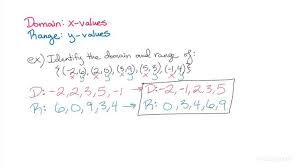 Domain: x-values
Range: y-values
ex) Identify the domain and range of:
{(-2,6), (2,0), (3,9), (5,3), (-1,4)}
x y x y x y x y x y
D: -2, 2, 3, 5, -1 → D: -2, -1, 2, 3, 5
R: 6, 0, 9, 3, 4 → R: 0, 3, 4, 6, 9